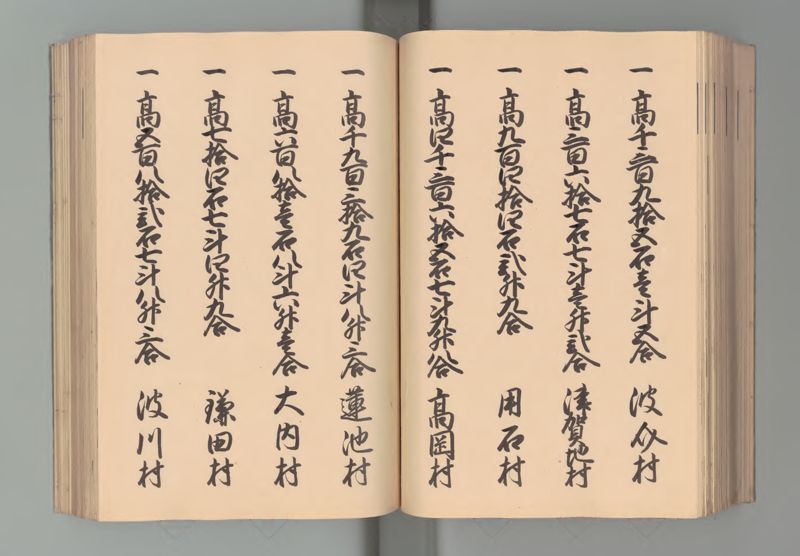 一 高千三百九拾五石壱斗五合 波介村
一 高三百六拾七石七斗壱升弐合 津賀地村
一 高九百四拾四石弐升九合 用石村
一 高四千三百六拾五石七斗九升八合 高岡村
一 高千九百三拾九石四斗八升三合 蓮池村
一 高六百八拾壱石八斗六升壱合 大内村
一 高七拾四石七斗四升九合 鎌田村
一 高五百八拾弐石七斗八升三合 波川村